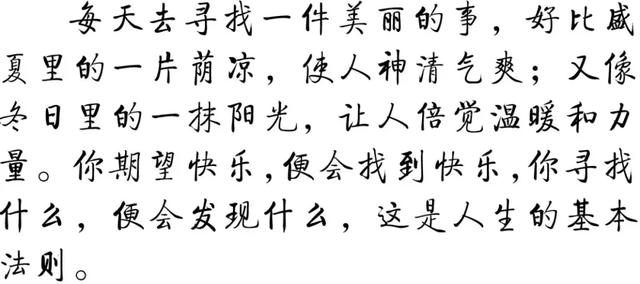 每天去寻找一件美丽的事，好比盛
夏里的一片荫凉，使人神清气爽；又像
冬日里的一抹阳光，让人倍觉温暖和力
量。你期望快乐，便会找到快乐，你寻找
什么，便会发现什么，这是人生的基本
法则。